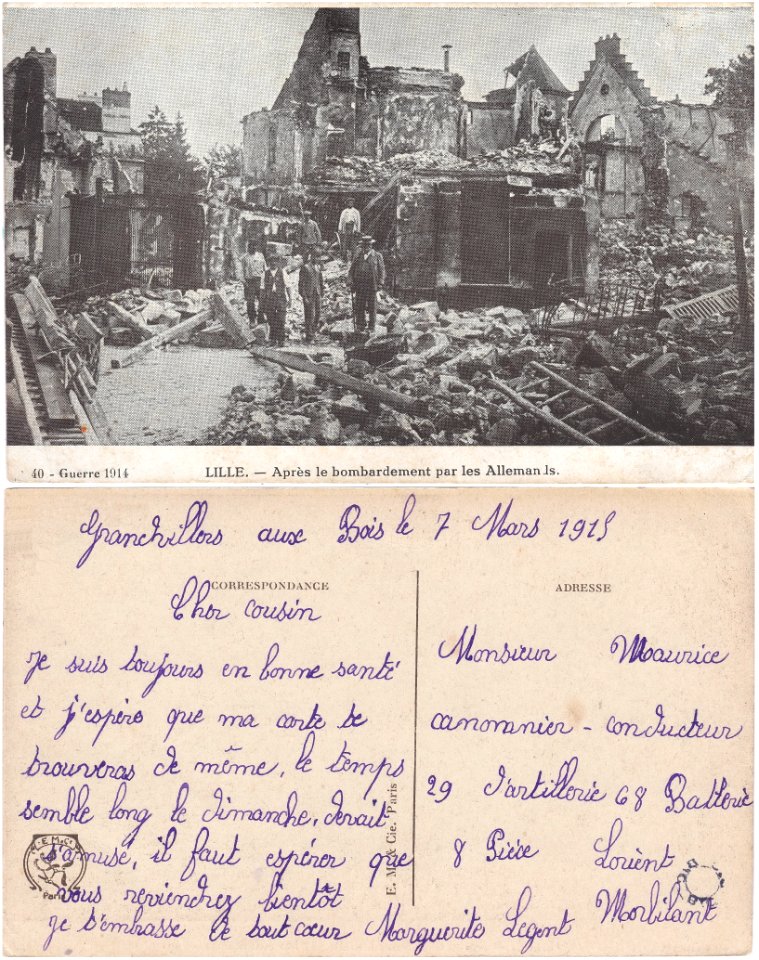 40 - Guerre 1914 LILLE. — Après le bombardement par les Allemands.
Grandvillers aux Bois le 7 Mars 1915
CORRESPONDANCE
Cher cousin
Je suis toujours en bonne santé
et j'espère que ma carte te
trouveras de même, le temps
semble long le dimanche,
s'amusé, il faut espérer que
vous reviendrez bientôt
je t'embrasse de tout cœur Marguerite Legent
E. M. & Cie. Paris
E. M. C.
Paris
ADRESSE
Monsieur Maurice
canonnier - conducteur
29 d'artillerie 68 Batterie
8 Pièce Lorient
Morbilant